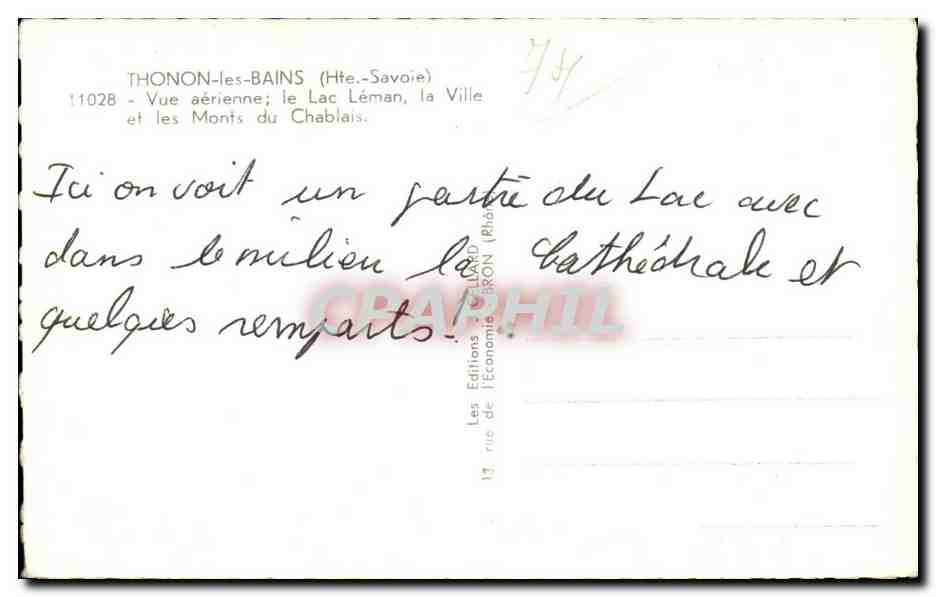 THONON-les-BAINS (Hte.-Savoie)
11028 - Vue aérienne; le Lac Léman, la Ville
et les Monts du Chablais.
74
Ici on voit un partie du Lac avec
dans le milieu la Cathédrale et
quelques remparts!
CPARPHIL
Les Editions CELLARD
13 rue de l'Economie - BRON (Rhône